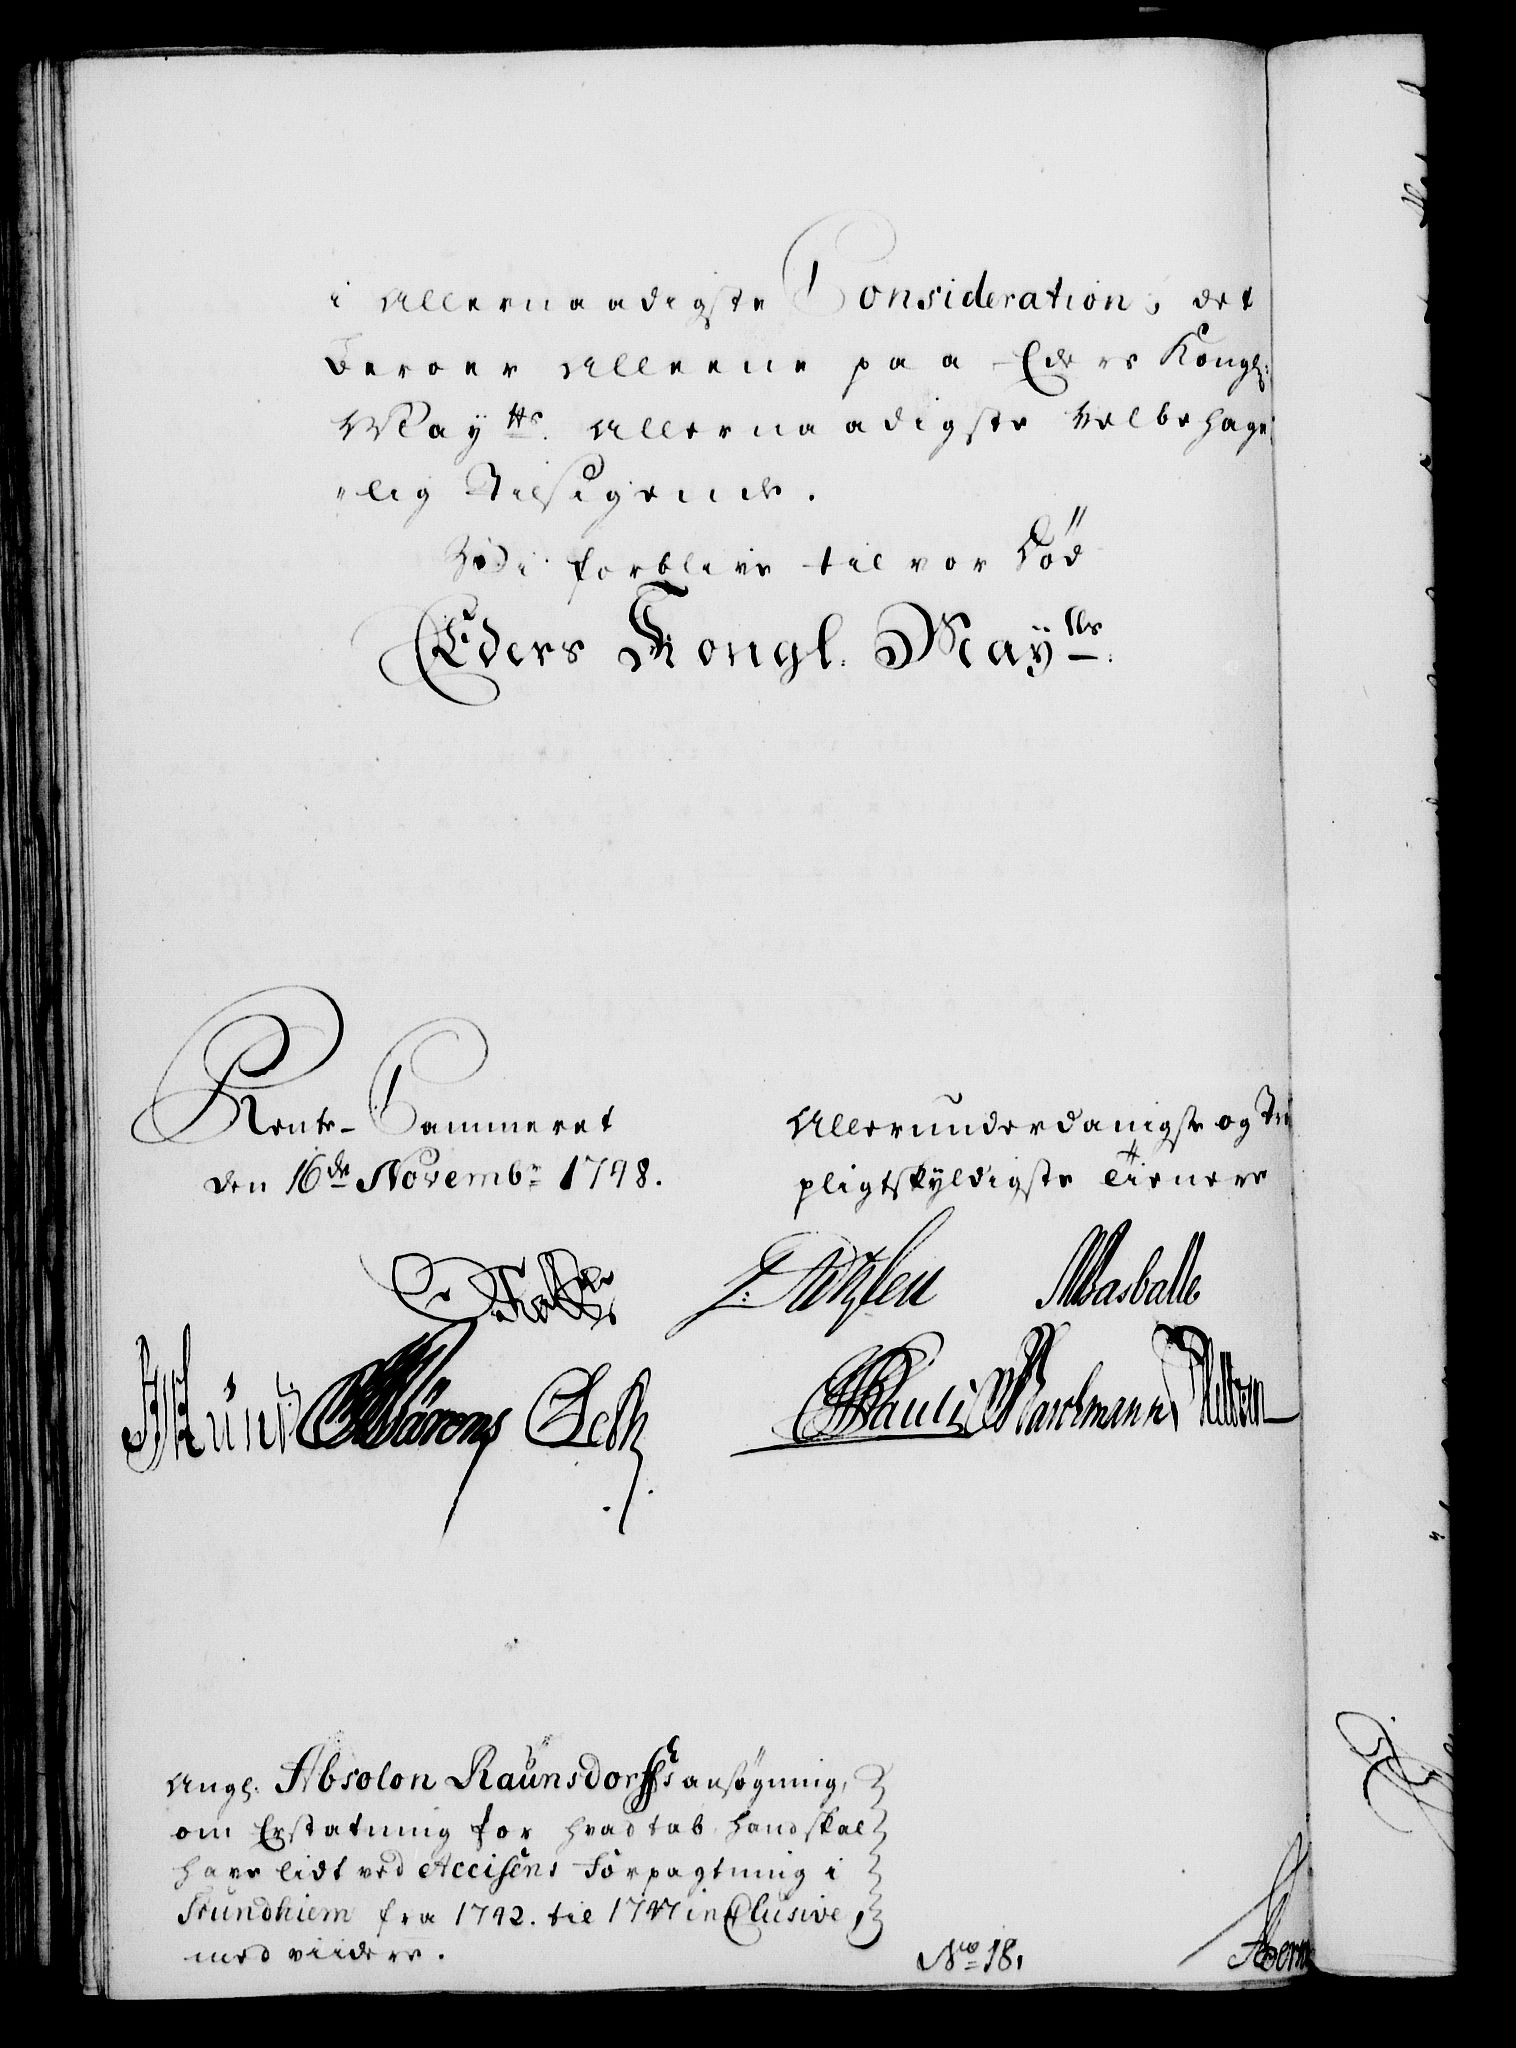 i Allernaadigste Consideration, det
beroer alleene paa Eders Kongl:
May^tts. Allernaadigste Velbehage
"lig Tilsigende.
Vi forblive til vor Död
Eders Kongl. May^tts.
Rente-Cammeret
den 16^de Novemb^r 1748.
Allerunderdanigste og Tro
pligtskyldigste Tienere
Masballe
Pauli
Angl. Absolon Raunsdorffs ansögning,
om Erstatning for hvad tab hand skal
have lidt ved Accisens Forpagtning i
Trundhiem fra 1742. til 1747 inclusive,
med viidere.
N^o 18,